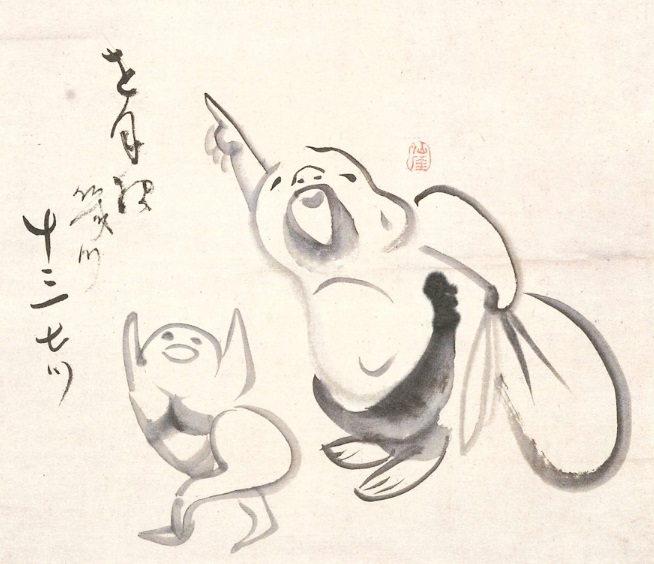 を月様
幾ツ
十三七ツ
仙厓